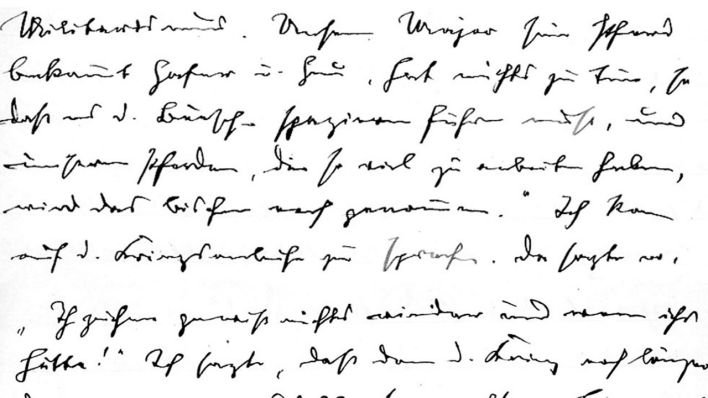 Militarismus. Unsern Major sein Pferd
bekommt Hafer u. Heu, hat nichts zu tun, so
daß es d. Bursche spazieren führen muß, und
unseren Pferden, die so viel zu arbeiten haben,
wird das bischen noch genommen." Ich kam
auf d. Kriegsanleihe zu sprechen. Da sagte er.
„Ich zeichne gewiß nichts wieder und wenn ichs
hätte!" Ich sagte, daß dann d. Krieg noch länger